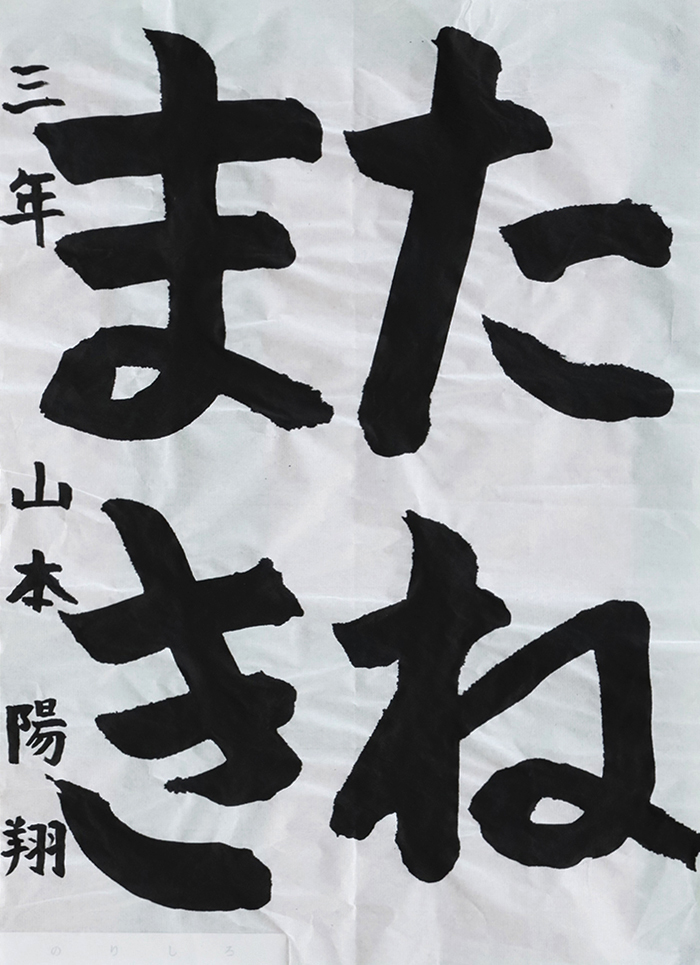 たね
まき
三年 山本 陽翔
のりしろ